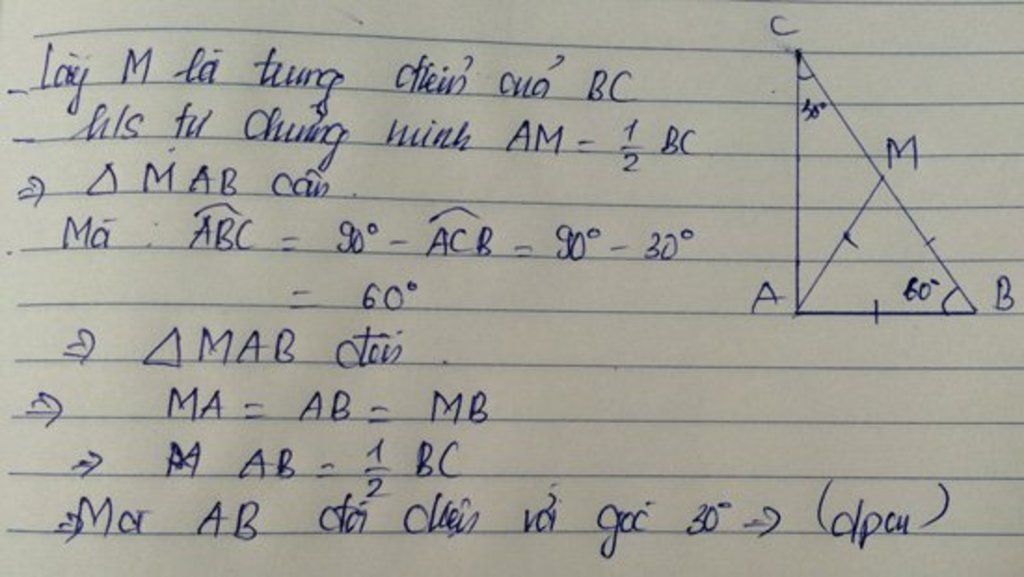 - Lấy M là trung điểm của BC
- h/s tự chứng minh AM = 1/2 BC
=> Δ MAB cân.
Mà : ABC = 90° - ACB = 90° - 30°
= 60°
=> Δ MAB đều.
=> MA = AB = MB
=> AB = 1/2 BC
=> Mà AB đối diện với góc 30° => (đpcm)
C
30°
M
A
60°
B